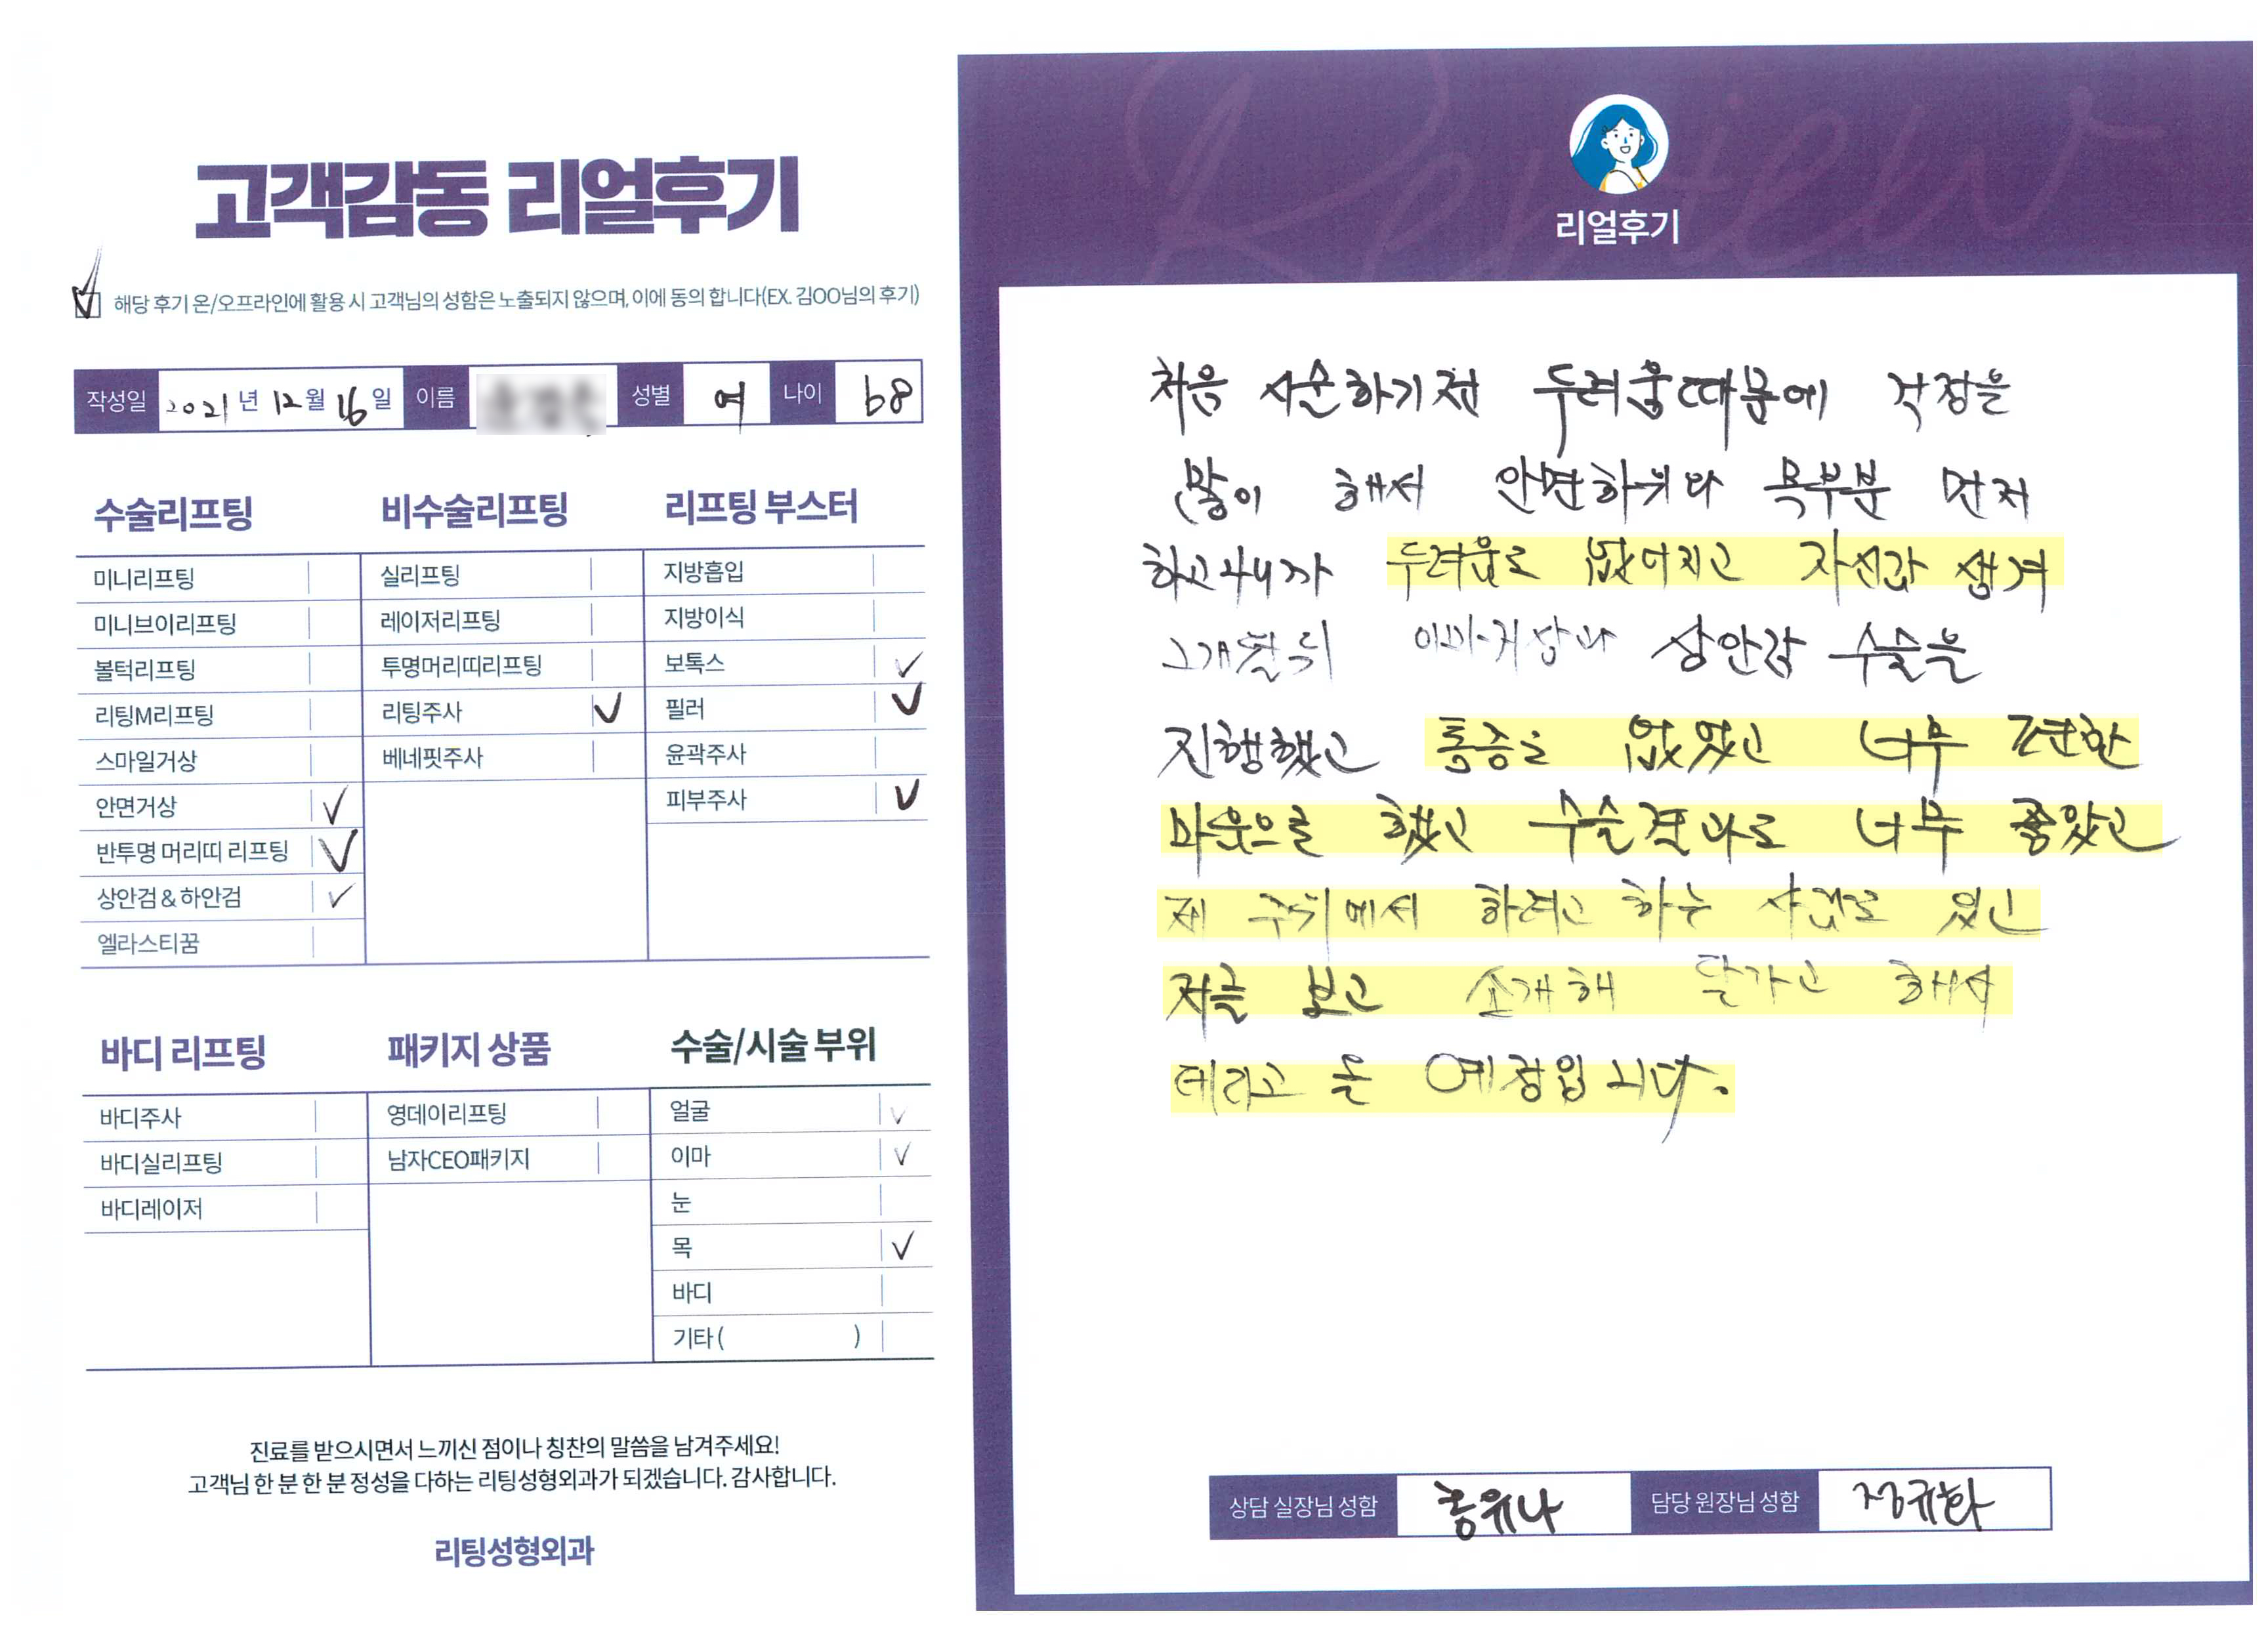 고객감동 리얼후기
해당 후기 온/오프라인에 활용 시 고객님의 성함은 노출되지 않으며, 이에 동의 합니다(EX. 김OO님의 후기)
작성일 2021년 12월 16일 이름 성별 여 나이 68
수술리프팅
미니리프팅
미니브이리프팅
볼턱리프팅
리팅M리프팅
스마일거상
안면거상 ✓
반투명 머리띠 리프팅 ✓
상안검 & 하안검 ✓
엘라스티꿈
비수술리프팅
실리프팅
레이저리프팅
투명머리띠리프팅
리팅주사 ✓
베네핏주사
리프팅 부스터
지방흡입
지방이식
보톡스 ✓
필러 ✓
윤곽주사
피부주사 ✓
바디 리프팅
바디주사
바디실리프팅
바디레이저
패키지 상품
영데이리프팅
남자CEO패키지
수술/시술 부위
얼굴 ✓
이마 ✓
눈
목 ✓
바디
기타 ( )
진료를 받으시면서 느끼신 점이나 칭찬의 말씀을 남겨주세요!
고객님 한 분 한 분 정성을 다하는 리팅성형외과가 되겠습니다. 감사합니다.
리팅성형외과
Review
리얼후기
처음 하기전 두려움때문에 걱정을
많이 해서 안면하뷔와 목부분 먼저
하고나니까 두려움도 없어지고 자신감 생겨
그개월뒤 이마거상과 상안감 수술을
진행했고 통증도 없었고 너무 편한
마음으로 했고 수술결과도 너무 좋았고
제 주위에서 하려고 하는 사람도 있고
저를 보고 소개해 달가고 해서
데리고 올 예정입니다.
상담 실장님 성함 홍유나 담당 원장님 성함